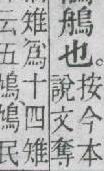 鵃也。按今本
說文奪
雉爲十四雉
云五鳩鳩民